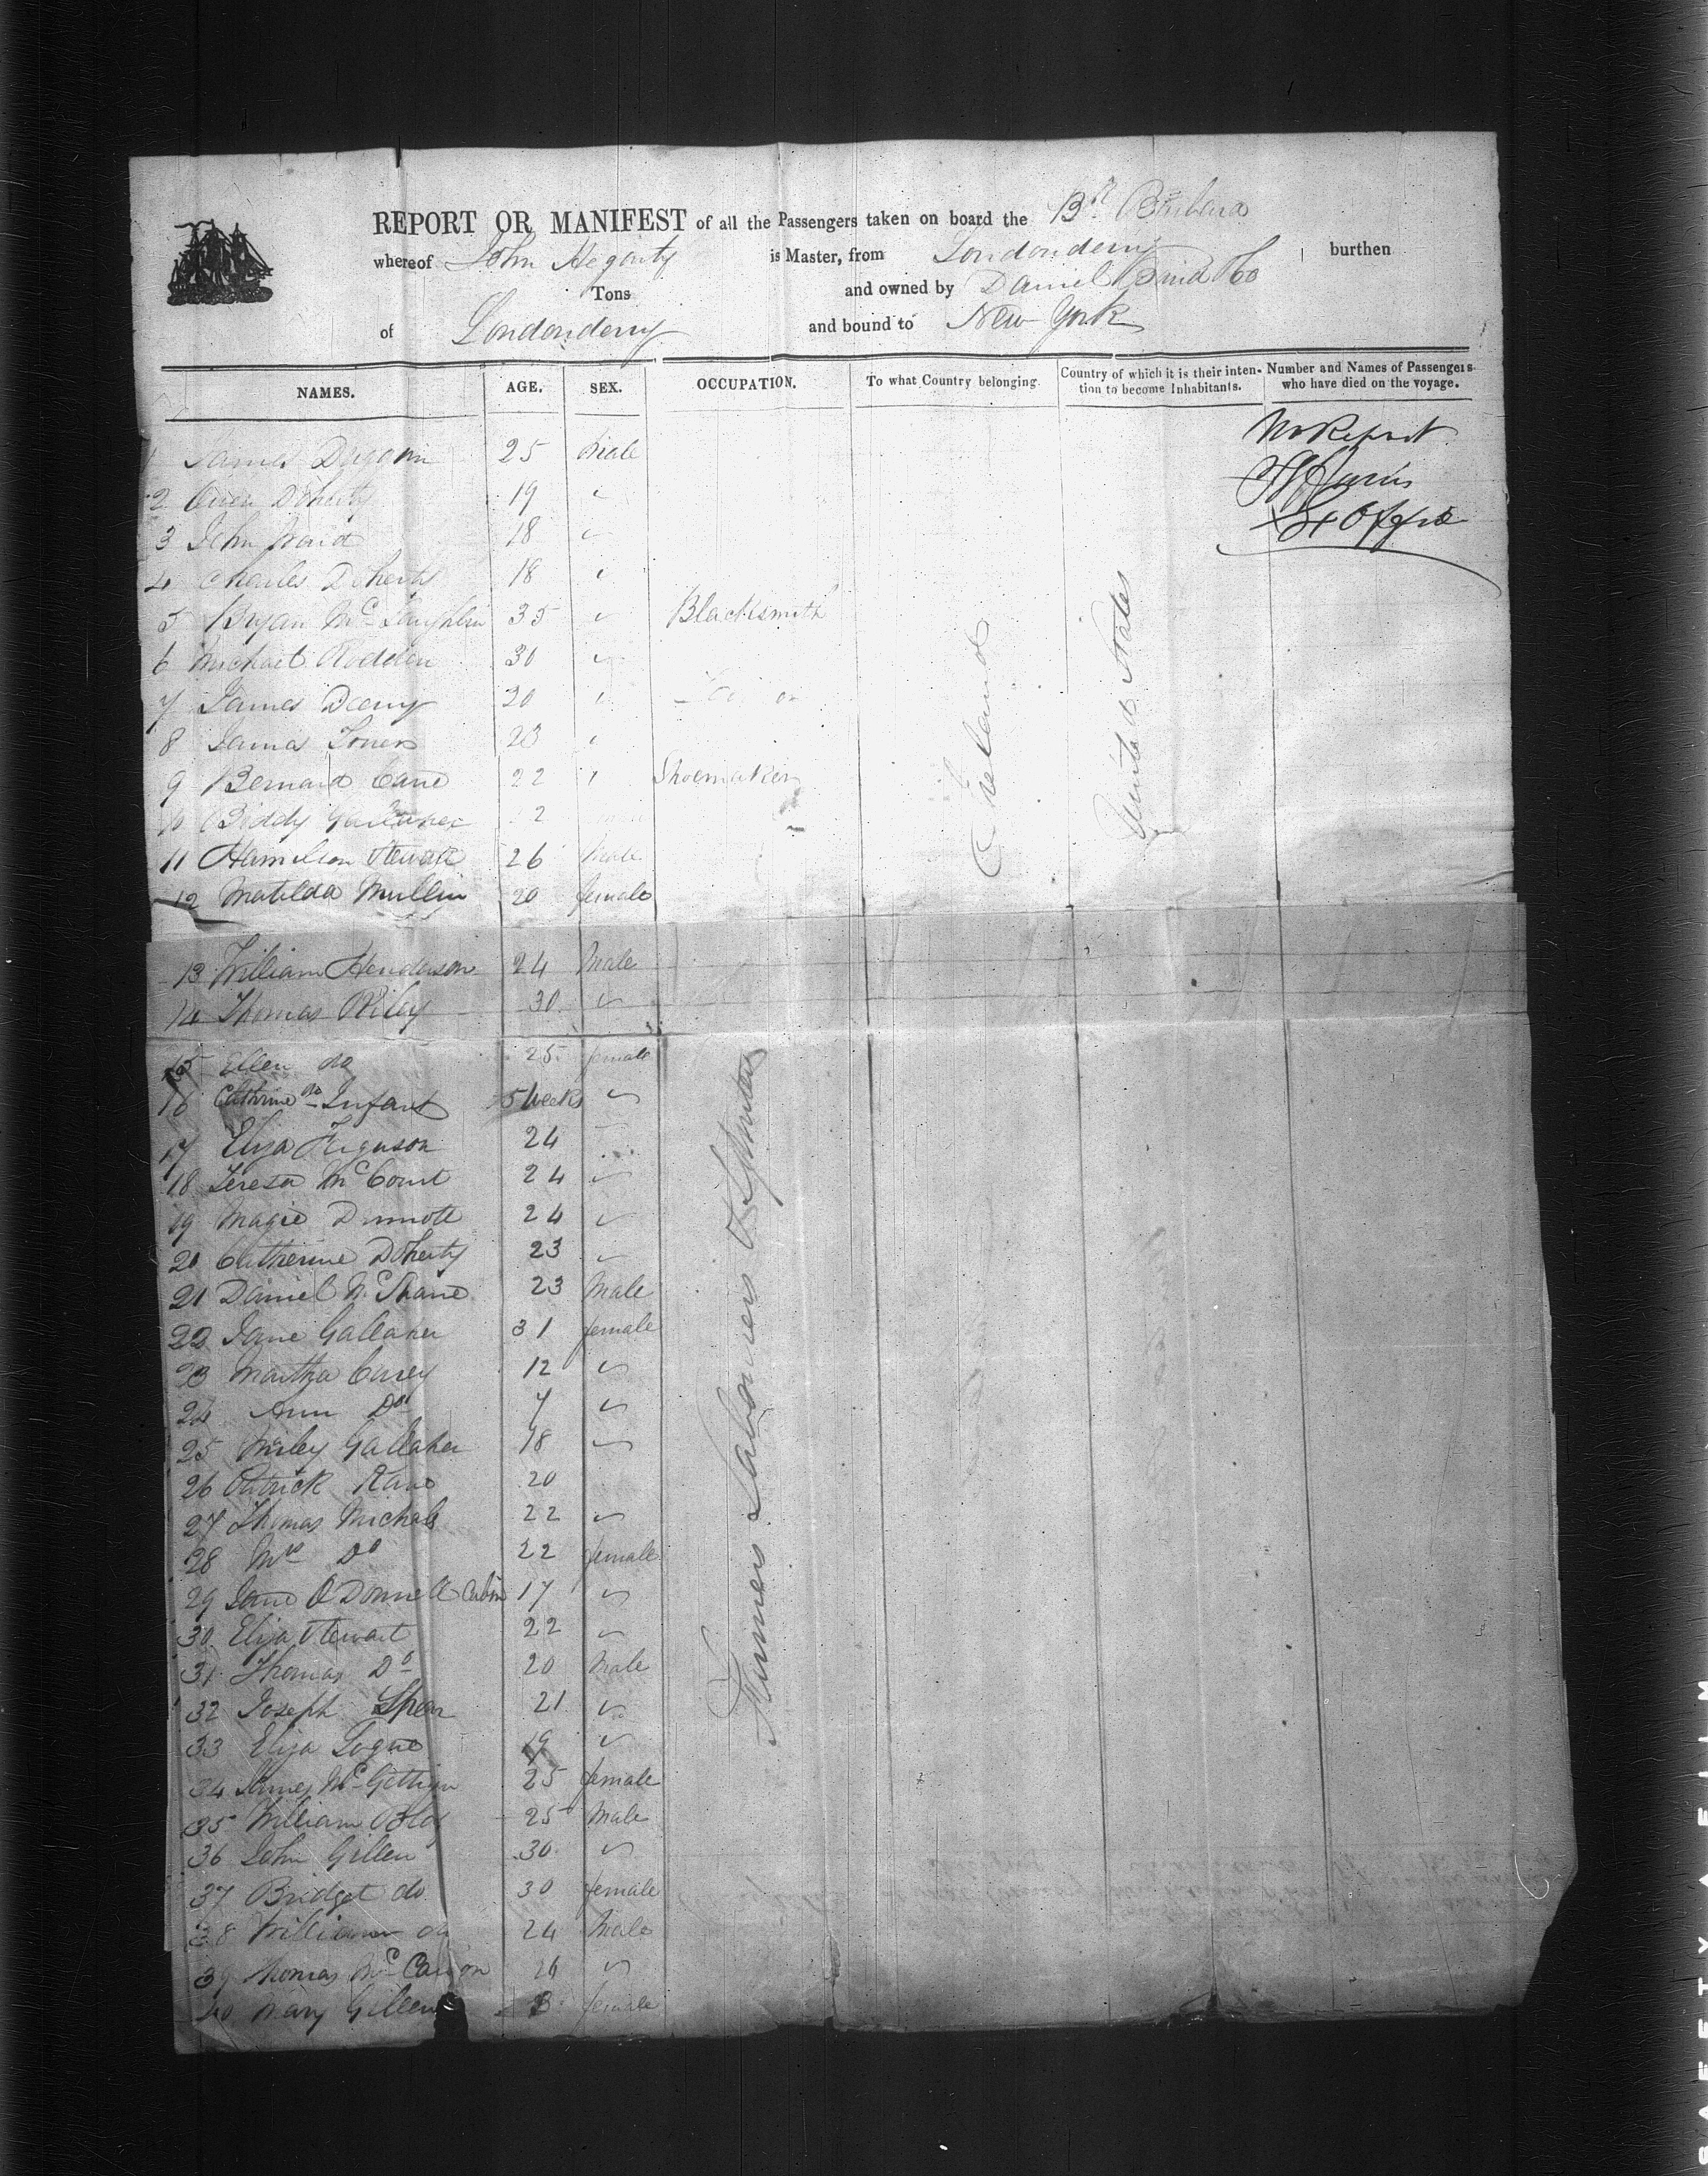 REPORT OR MANIFEST of all the Passengers taken on board the Br Barbara
whereof John Hegarty is Master, from Londonderry burthen
Tons and owned by Daniel Baird & Co
of Londonderry and bound to New York
NAMES. AGE. SEX. OCCUPATION. To what Country belonging. Country of which it is their intention to become Inhabitants. Number and Names of Passengers who have died on the voyage.
No Report
1 James Duggan 25 Male
2 Owen Doherty 19 "
3 John 18 "
4 Charles Doherty 18 "
5 Bryan McLaughlin 35 " Blacksmith
6 Michael Rodden 30 "
7 James Deeny 20 "
8 James Toner 20 "
9 Bernard Cane 22 " Shoemaker
10 Biddy Gallaher
11 Hamilton Stewart 26 Male
12 Matilda Mullin 20 female
13 William Henderson 24 Male
14 Thomas Riley 30 "
15 Ellen do 25 female
16 Cathrine do Infant 5 Weeks "
17 Eliza Ferguson 24
18 Teresa McCourt 24 "
19 Magie 24 "
20 Catherine Doherty 23 "
21 Daniel McShane 23 Male
22 Jane Gallaher 31 female
23 Martha Carey 12 "
24 Ann Do 7 "
25 Gallaher 18 "
26 Patrick Kane 20
27 Thomas Michals 22 "
28 Mrs Do 22 female
29 Jane O'Donnell Cabin 17 "
30 Eliza Stewart 22 "
31 Thomas Do 20 Male
32 Joseph Speer 21 "
33 Eliza Logue 19 "
34 McGettigan 25 female
35 William 25 Male
36 John Gillen 30 "
37 Bridget do 30 female
38 William do 24 Male
39 Thomas Mc "
40 Mary Gillen female
Farmers Labourers & Spinsters
Ireland
United States
SAFETY FILM